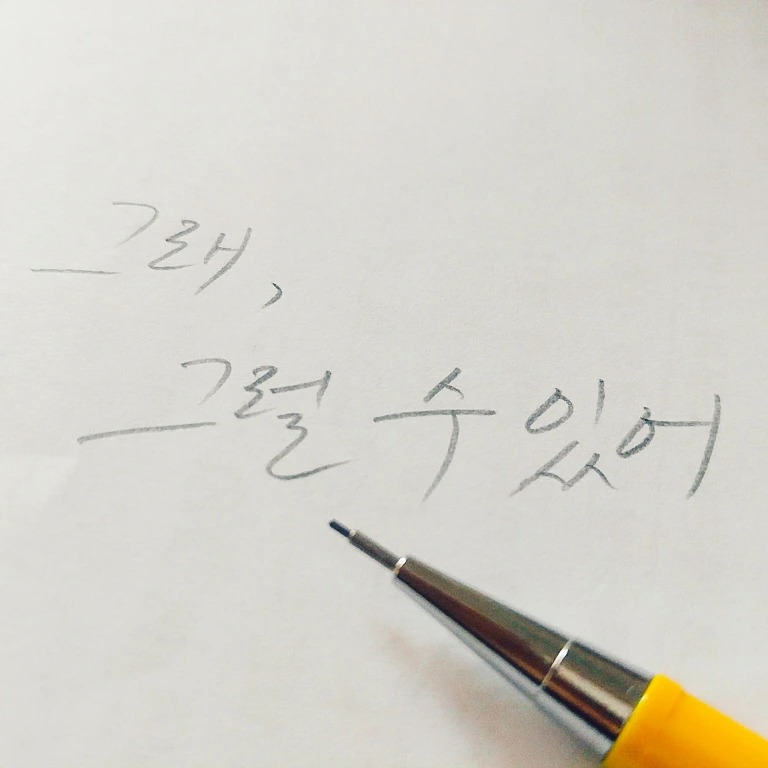 그래,
그럴 수 있어